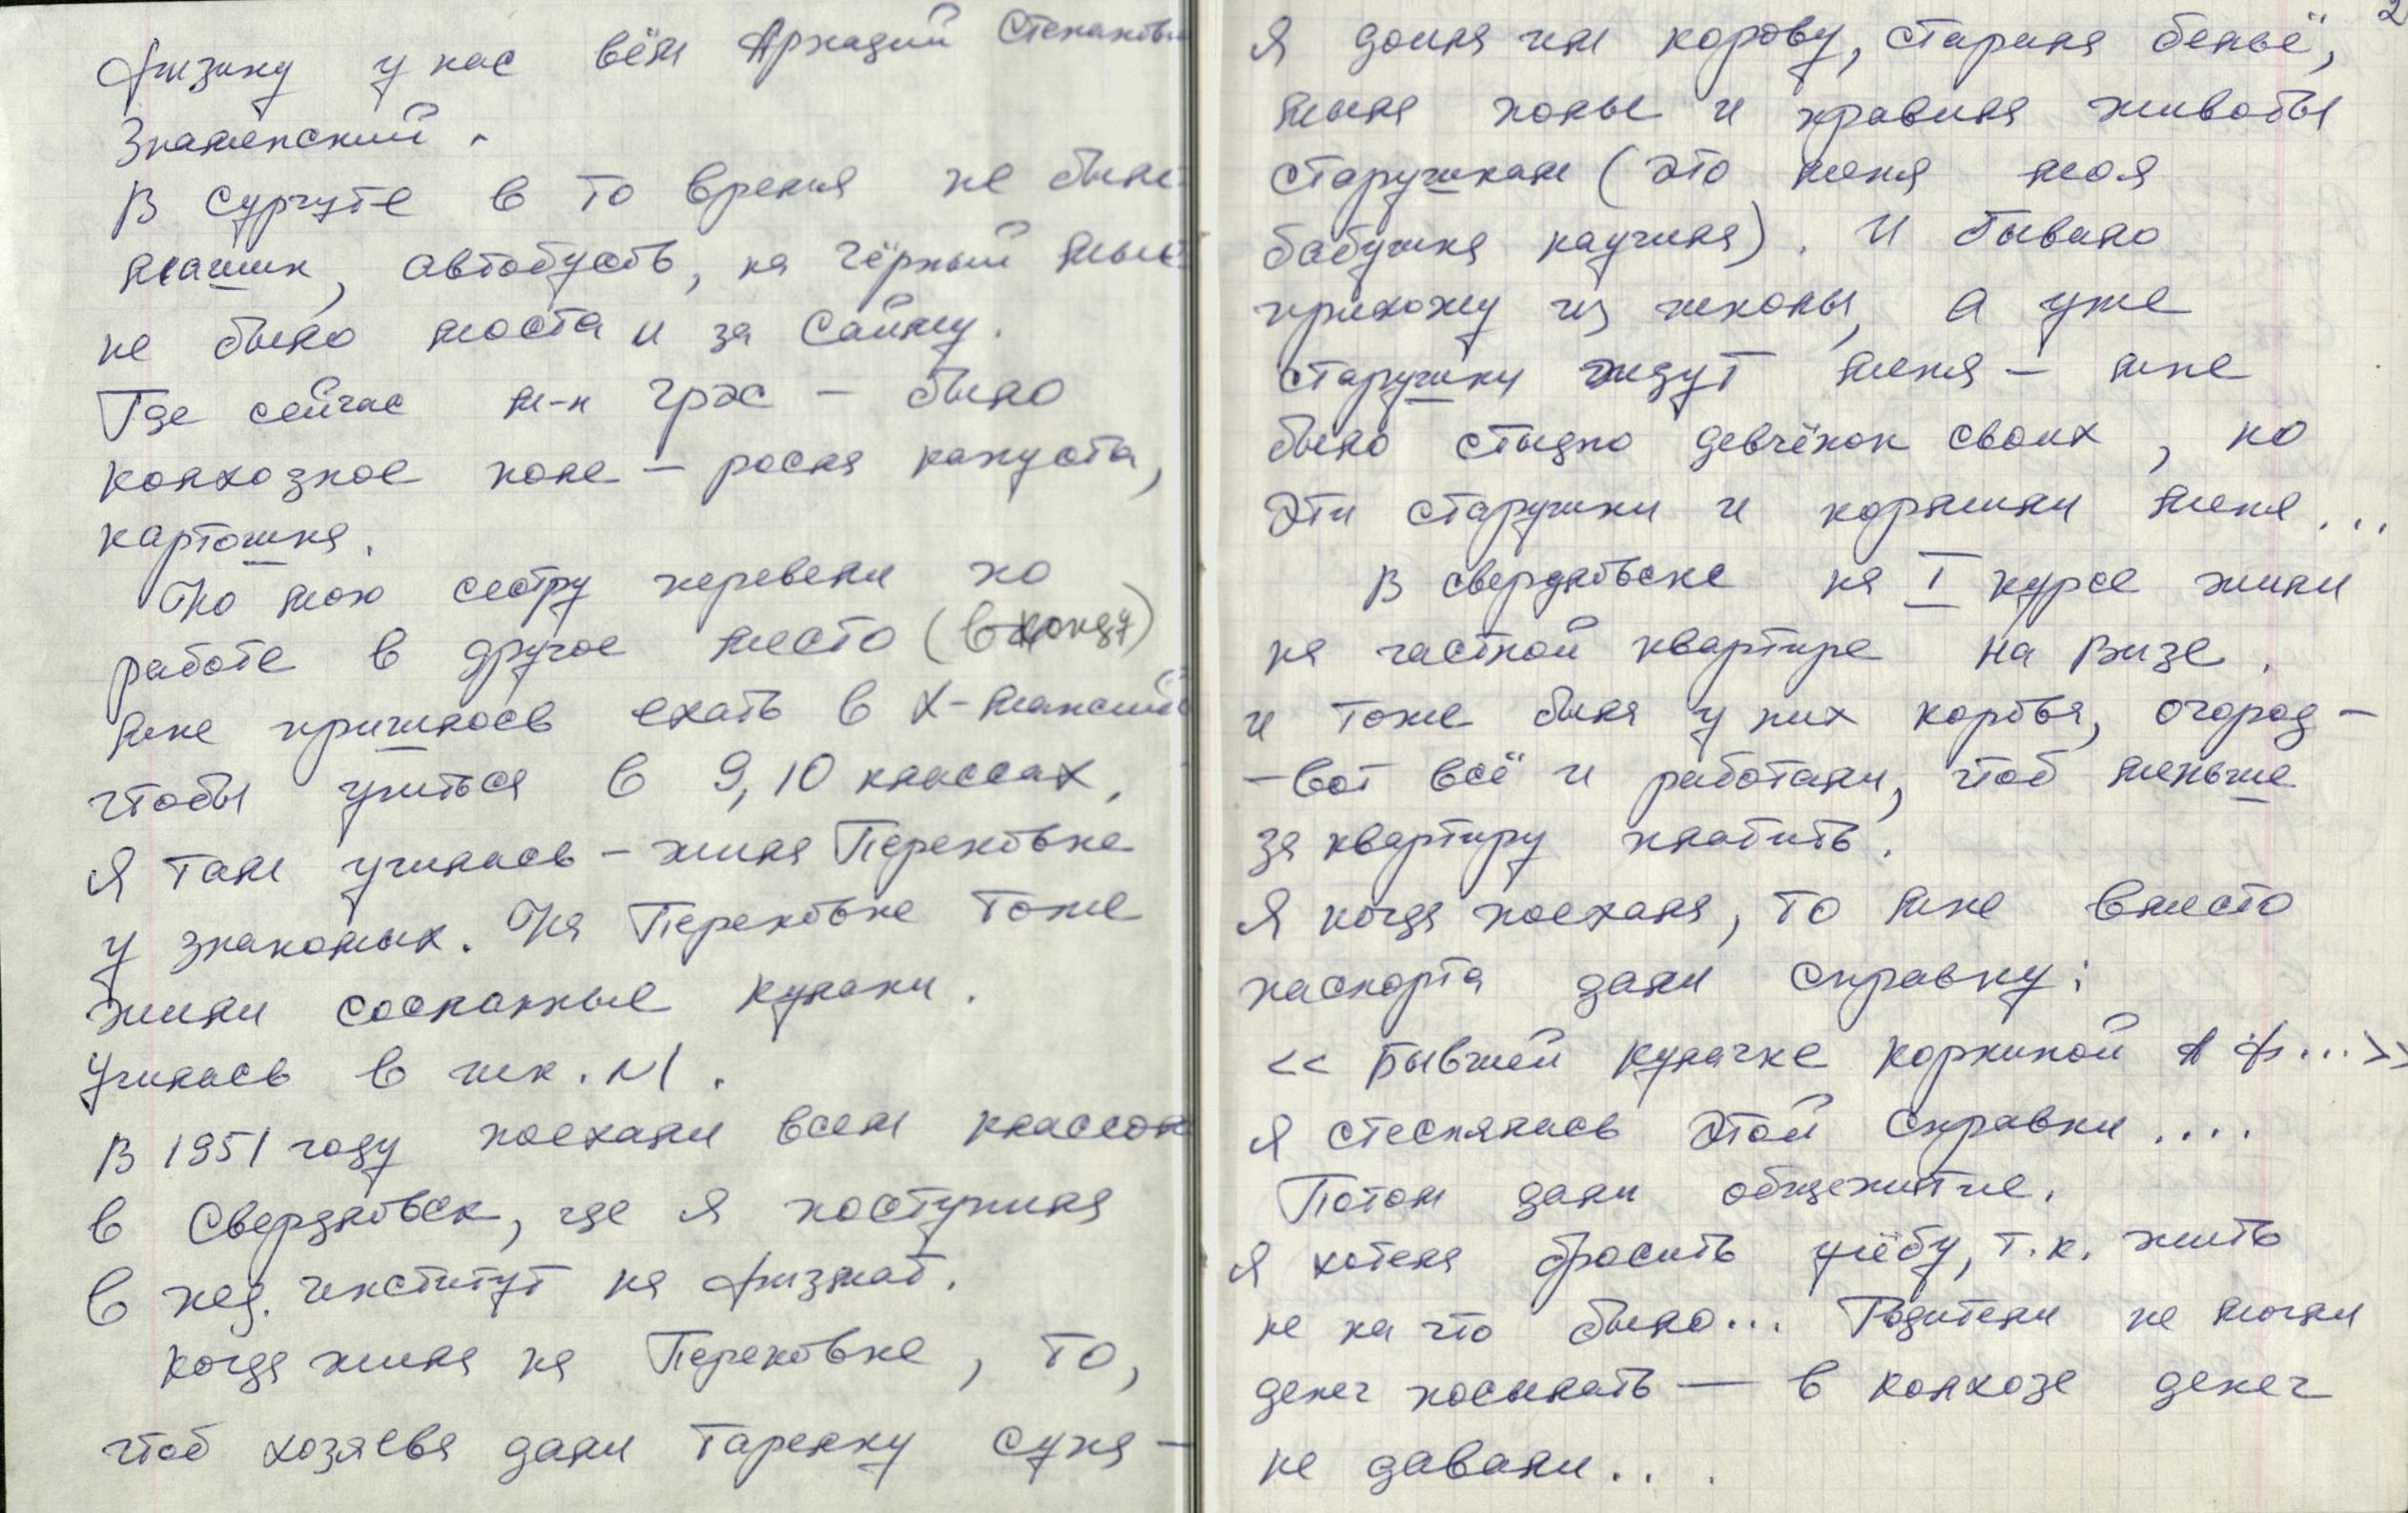 физику у нас вёл Аркадий Степанови
Знаменский.
В Сургуте в то время не было
машин, автобусов, на чёрный мыс
не было моста и за Сайму.
Где сейчас м-н ГРЭС – было
колхозное поле – росла капуста,
картошка.
Но мою сестру перевели по
работе в другое место (в Конду)
мне пришлось ехать в Х-Мансийс
чтобы учиться в 9, 10 классах,
Я там училась – жила Перековке
у знакомых. На Перековке тоже
жили сосланные кулаки.
Училась в шк. N1.
В 1951 году поехали всем классом
в Свердловск, где я поступила
в пед. институт на физмат.
Когда жила на Перековке, то,
чтоб хозяева дали тарелку супа –
2
Я доила им корову, стирала бельё,
мыла полы и правила животы
старушкам (это меня моя
бабушка научила). И бывало
прихожу из школы, а уже
старушки ждут меня – мне
было стыдно девчёнок своих, но
Эти старушки и кормили меня...
В Свердловске на I курсе жили
на частной квартире на Визе.
и тоже была у них корова, огород –
– вот всё и работали, чтоб меньше
за квартиру платить.
Я когда поехала, то мне вместо
паспорта дали справку:
<< Бывшей кулачке Коркиной А Ф... >>
Я стеснялась этой справки....
Потом дали общежитие.
Я хотела бросить учёбу, т.к. жить
не на что было... Родители не могли
денег посылать — в колхозе денег
не давали...